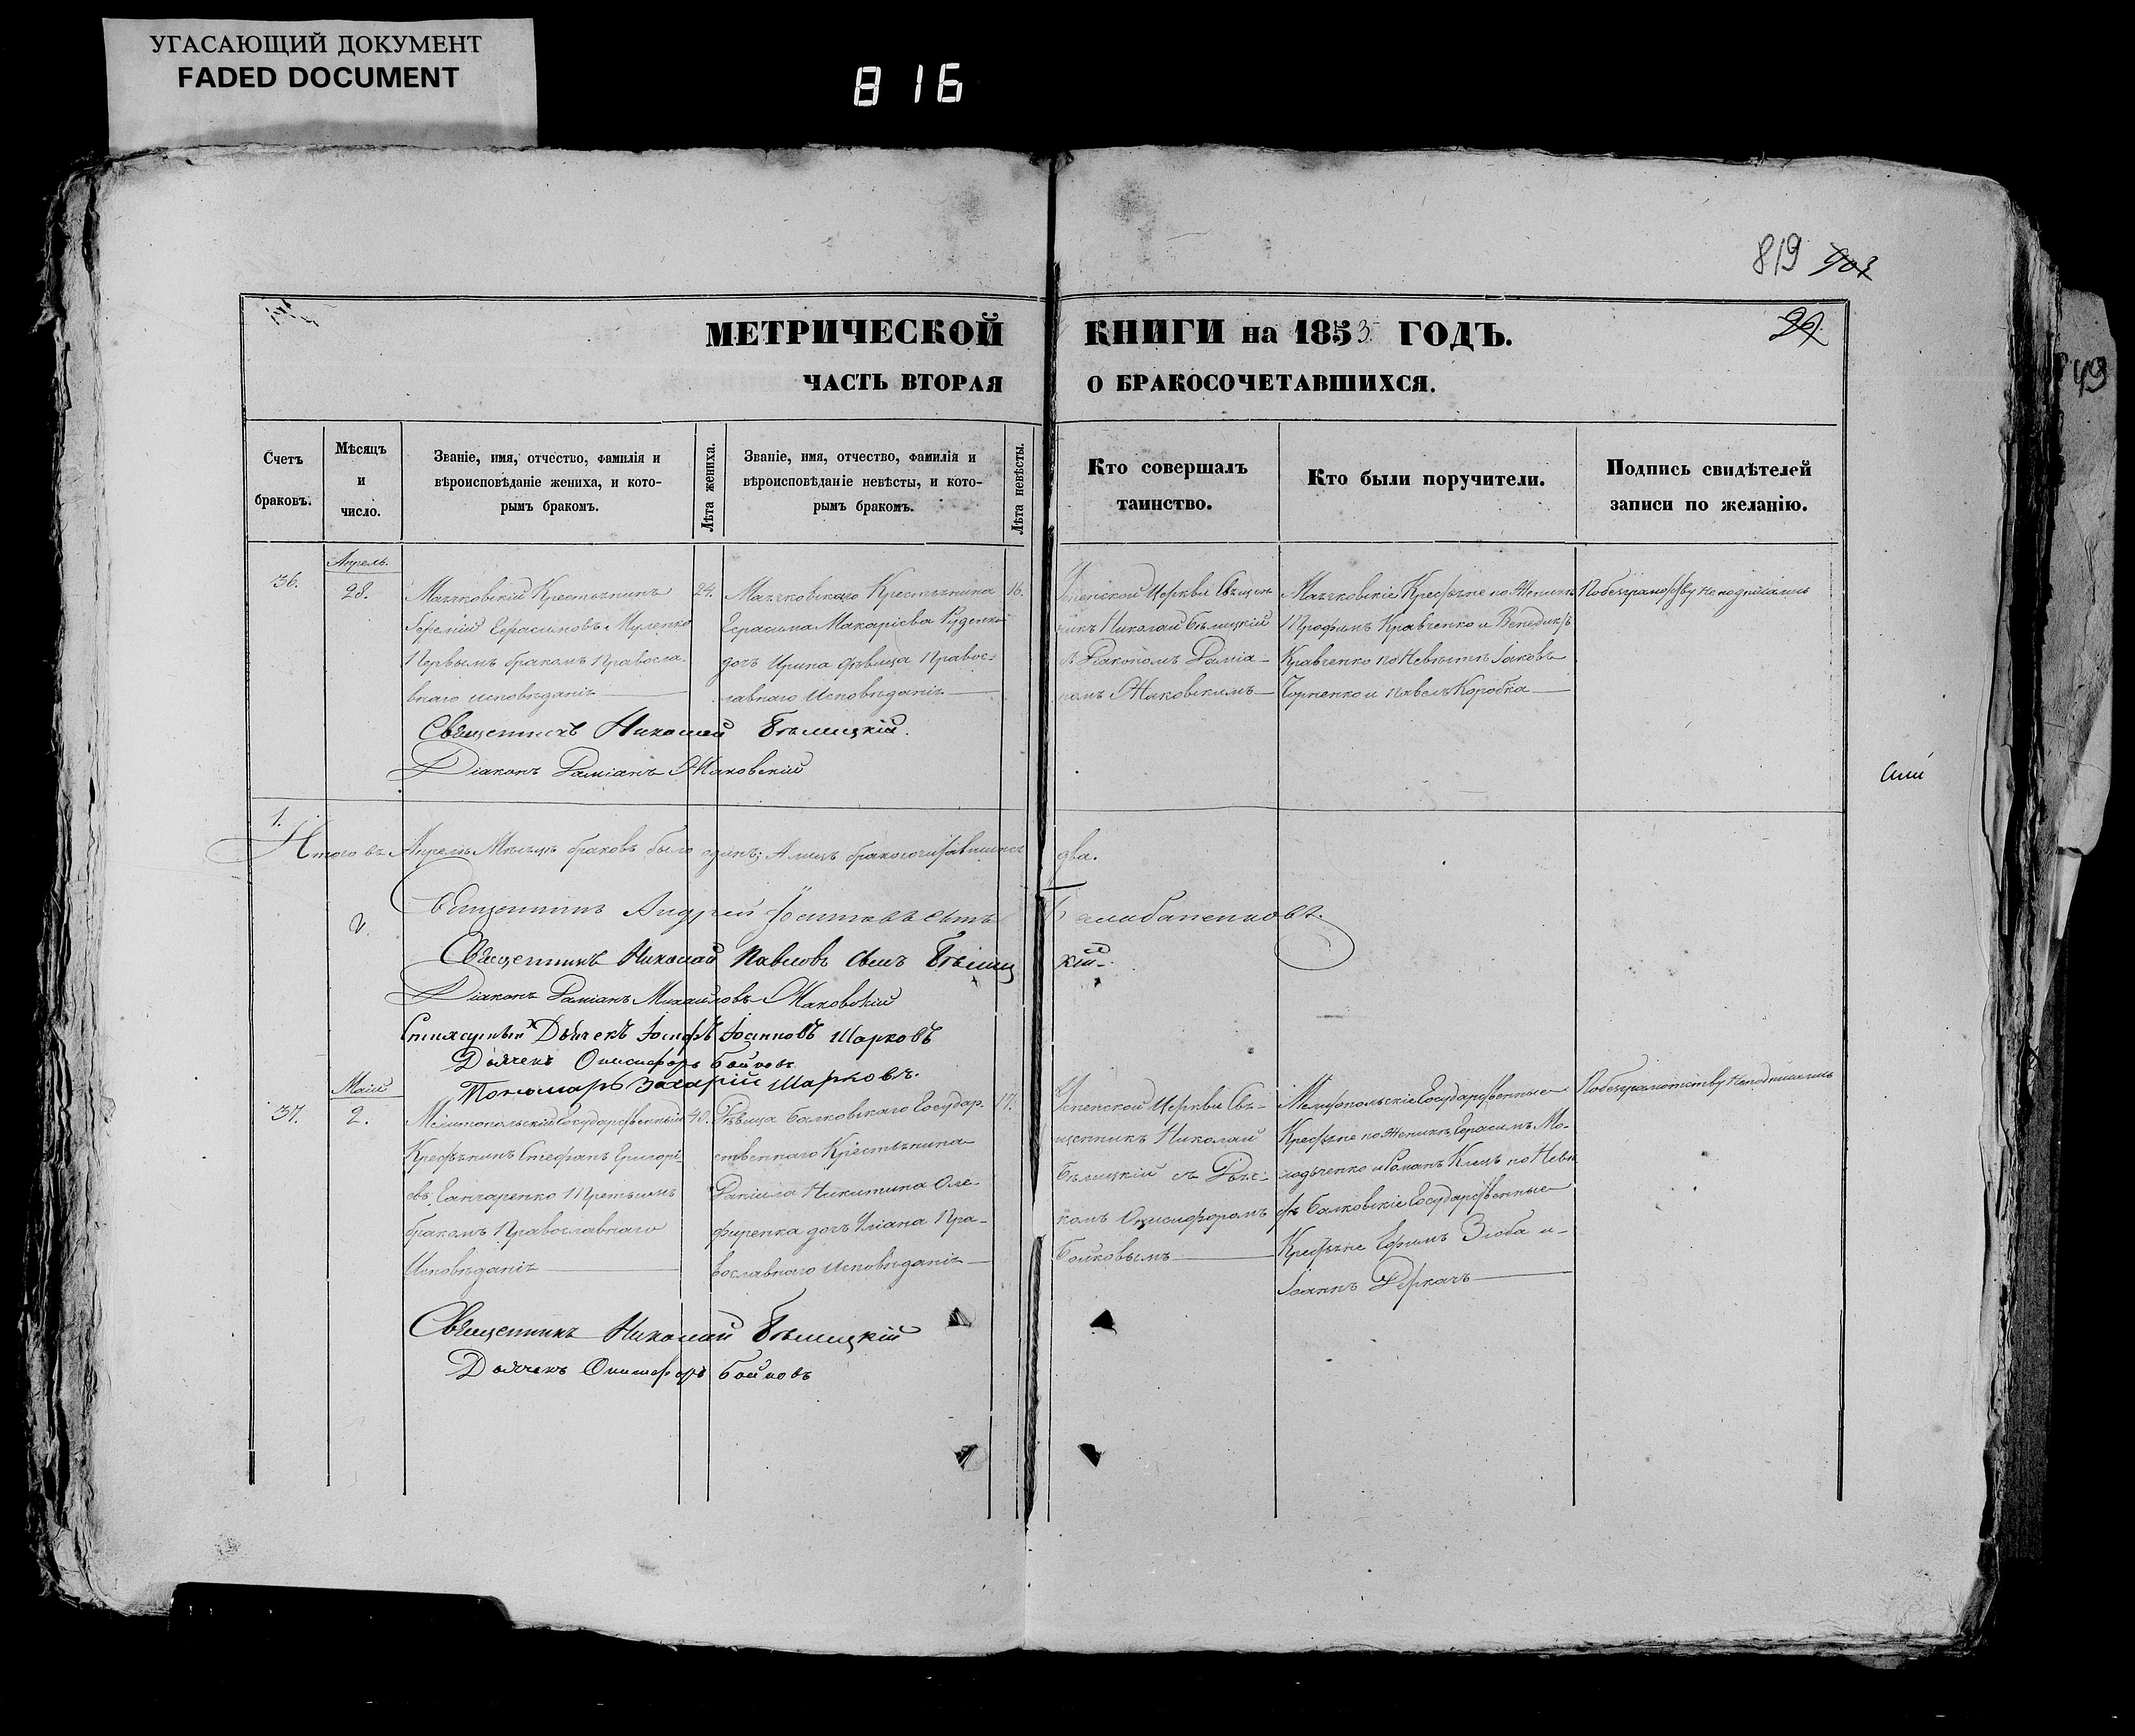 УГАСАЮЩИЙ ДОКУМЕНТ
FADED DOCUMENT
816
819 903
МЕТРИЧЕСКОЙ КНИГИ на 1853 ГОДЪ.
ЧАСТЬ ВТОРАЯ О БРАКОСОЧЕТАВШИХСЯ.
Счетъ
браковъ.
Мѣсяцъ
и
число.
Званіе, имя, отчество, фамилія и
вѣроисповѣданіе жениха, и кото-
рымъ бракомъ.
Лѣта жениха.
Званіе, имя, отчество, фамилія и
вѣроисповѣданіе невѣсты, и кото-
рымъ бракомъ.
Лѣта невѣсты.
Кто совершалъ
таинство.
Кто были поручители.
Подпись свидѣтелей
записи по желанію.
36.
Апрель.
28.
Маячковскій Крестьянинъ
Іеремій Герасимовъ Муленко
Первымъ бракомъ Правосла-
внаго исповѣданія
24.
Маячковскаго Крестьянина
Герасима Макаріева Руденко
дочь Ирина дѣвица Правос-
лавнаго Исповѣданія
16.
Успенской Церкви Священ-
никъ Николай Бѣлицкій
съ Діакономъ Даміа-
номъ Жаковскимъ
Маячковскіе Крестьяне по Женихѣ
Трофимъ Кравченко и Венедиктъ
Кравченко по Невѣстѣ Іаковъ
Чорненко и Павелъ Коробка
По безграмотству неподписались
Священникъ Николай Бѣлицкій.
Діаконъ Даміанъ Жаковскій
1.
Итого въ Апрелѣ Мѣсяцѣ браковъ было одинъ; А лицъ бракосочетавшихся два.
Священникъ Андрей
Священникъ Николай Павловъ сынъ Бѣлицкій.
Діаконъ Даміанъ Михайловъ Жаковскій
Стихарный Дьячекъ Іосифъ Іоанновъ Шарковъ
Дьячекъ Онисифоръ Бойковъ
Пономарь Захарій Шарковъ.
37.
Май
2.
Мелитопольскій Государственный
Крестьянинъ Стефанъ Григорі-
евъ Ганчаренко Третьимъ
бракомъ Православнаго
Исповѣданія
40.
Дѣвица Балковскаго Государ-
ственнаго Крестьянина
Даніила Никитина Оле-
фиренка дочь Уліана Пра-
вославнаго Исповѣданія
17.
Успенской Церкви Свя-
щенникъ Николай
Бѣлицкій съ Дьяч-
комъ Онисифоромъ
Бойковымъ
Мелитопольскіе Государственные
Крестьяне по Женихѣ Герасимъ Мо-
ходченко и Романъ Клецъ по Невѣс-
тѣ Балковскіе Государственные
Крестьяне Ефимъ Зюба и
Іоаннъ Деркачъ
По безграмотству неподписались
Священникъ Николай Бѣлицкій
Дьячекъ Онисифоръ Бойковъ